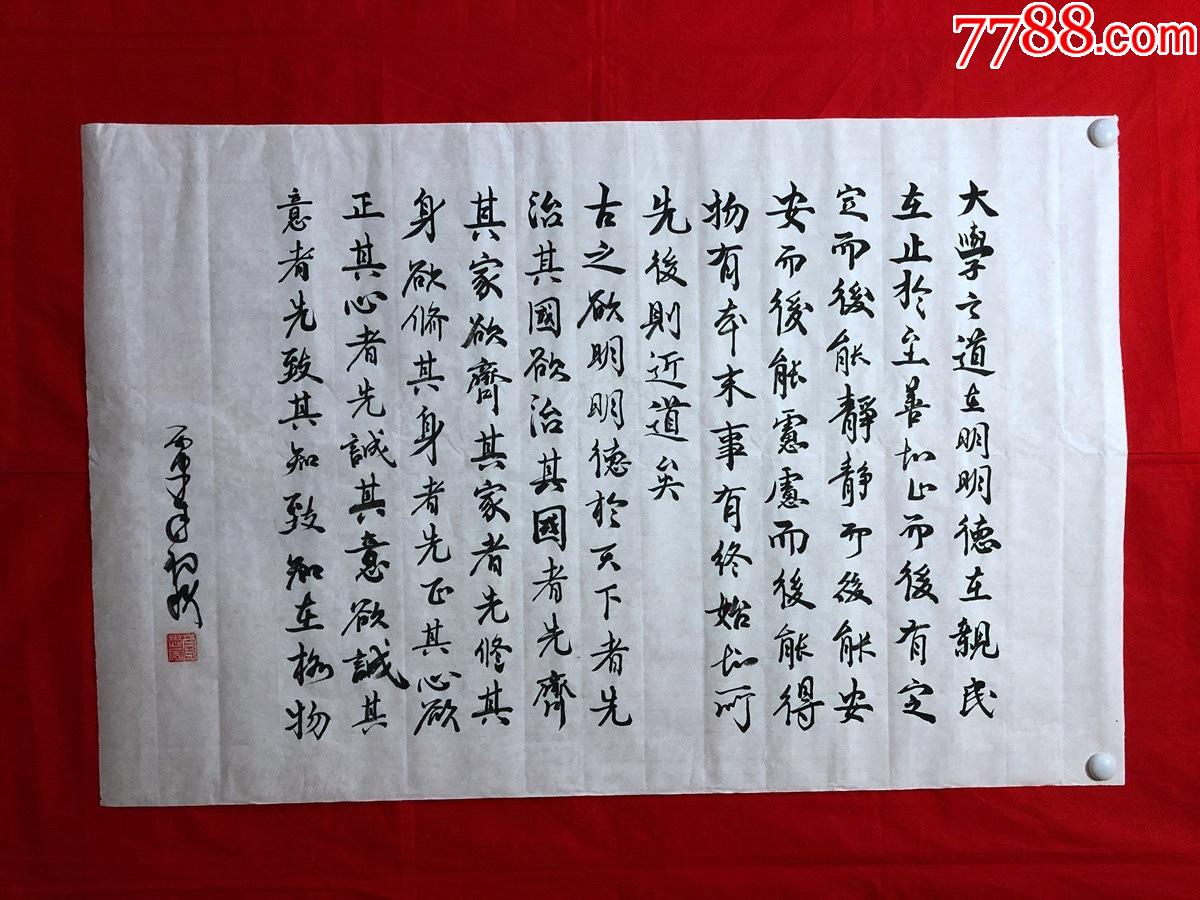 7788.com
大學之道在明明德在親民
在止於至善知止而後有定
定而後能靜靜而後能安
安而後能慮慮而後能得
物有本末事有終始知所
先後則近道矣
古之欲明明德於天下者先
治其國欲治其國者先齊
其家欲齊其家者先修其
身欲修其身者先正其心欲
正其心者先誠其意欲誠其
意者先致其知致知在格物